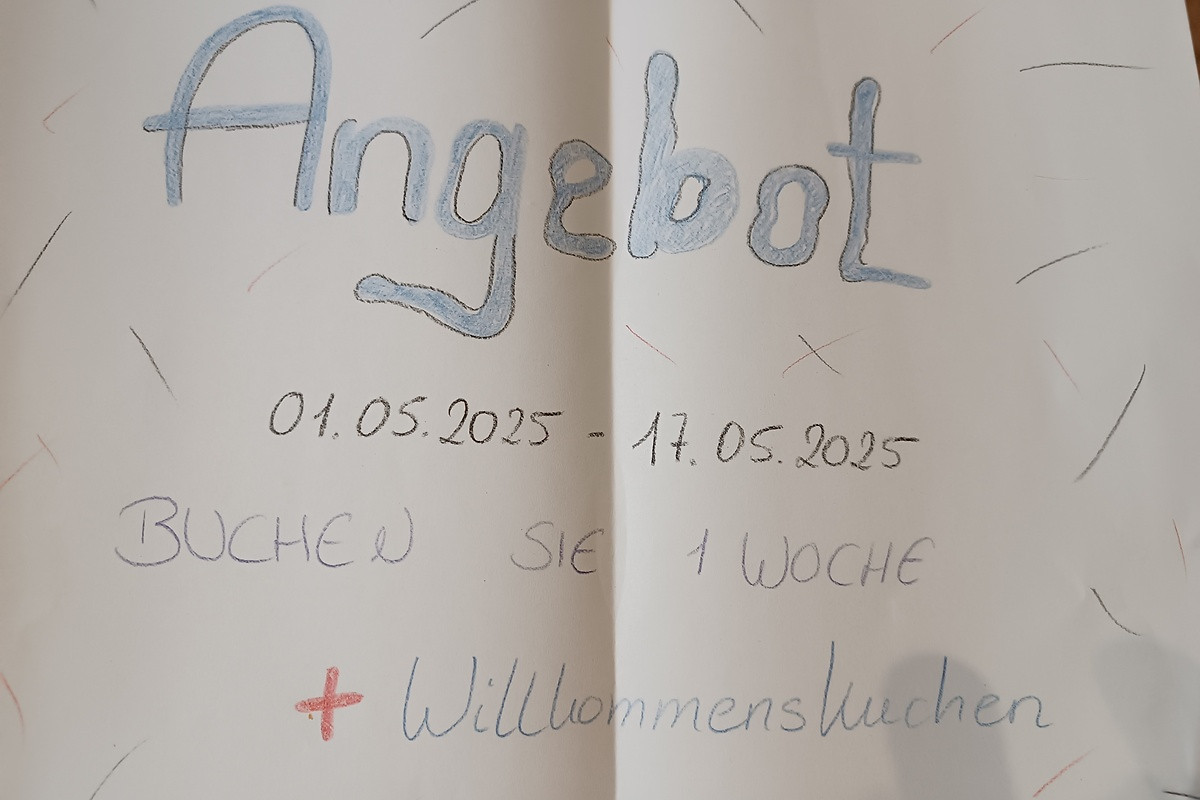 Angebot
01.05.2025 - 17.05.2025
BUCHEN SIE 1 WOCHE
+ Willkommenskuchen